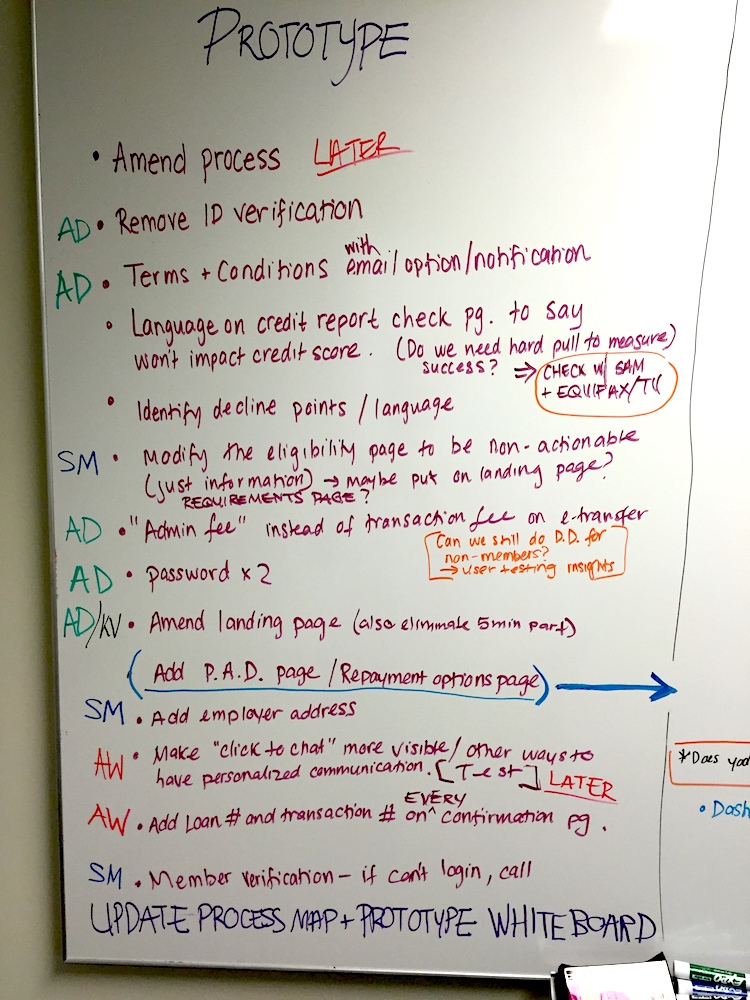 PROTOTYPE
• Amend process LATER
AD • Remove ID verification
AD • Terms + Conditions with email option/notification
• Language on credit report check pg. to say
won't impact credit score. (Do we need hard pull to measure)
success? ⇒ CHECK W/ SAM
+ EQUIFAX/TU
• Identify decline points / language
SM • Modify the eligibility page to be non-actionable
(just information) → maybe put on landing page?
REQUIREMENTS PAGE?
AD • "Admin fee" instead of transaction fee on e-transfer
Can we still do D.D. for
non-members?
→ user testing insights
AD • password x 2
AD/KV • Amend landing page (also eliminate 5min part)
(Add P.A.D. page / Repayment options page) →
SM • Add employer address
AW • Make "click to chat" more visible/ other ways to
have personalized communication. [Test] LATER
AW • Add Loan # and transaction # on ^ EVERY confirmation pg.
SM • Member verification - if can't login, call
UPDATE PROCESS MAP + PROTOTYPE WHITEBOARD
*Does
• Dash